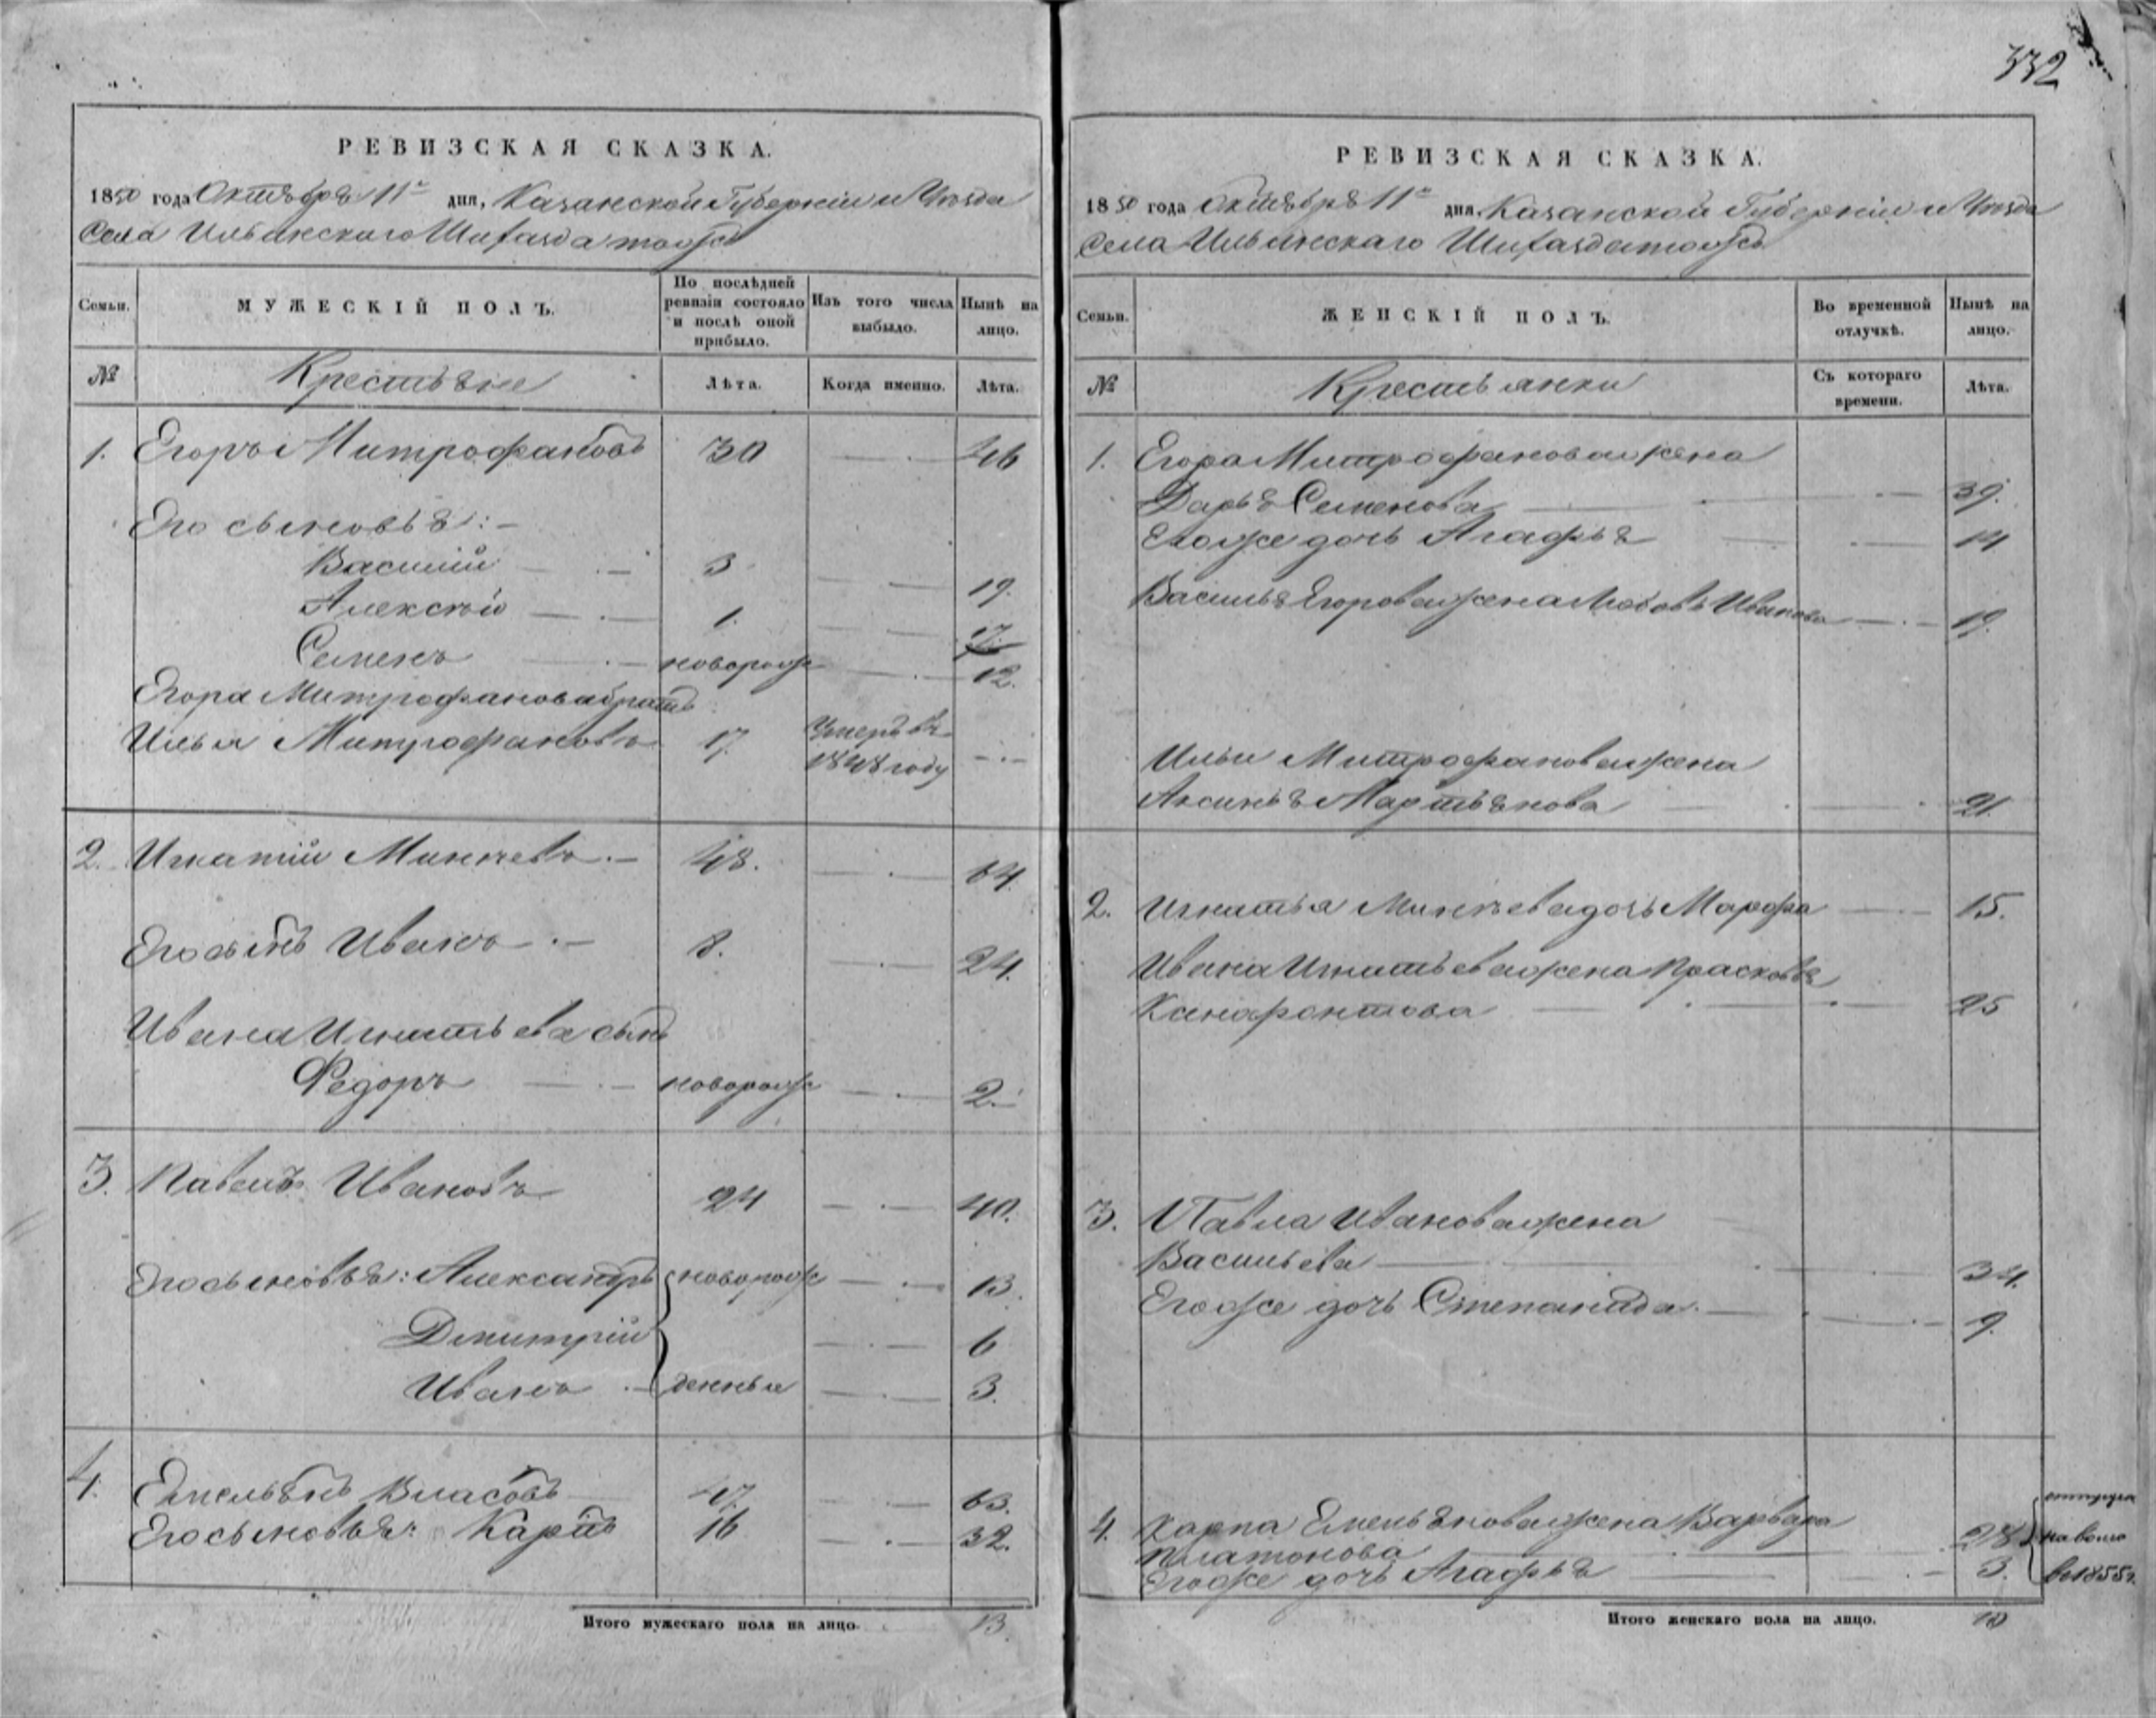 332
РЕВИЗСКАЯ СКАЗКА.
1850 года Октября 11го дня, Казанской Губерніи и Уѣзда
Села Ильинскаго Шигазда тожъ
Семьи. МУЖЕСКІЙ ПОЛЪ. По послѣдней ревизіи состояло и послѣ оной прибыло. Изъ того числа выбыло. Нынѣ на лицо.
№ Крестьяне Лѣта. Когда именно. Лѣта.
1. Егоръ Митрофановъ 30 46
Его сыновья:
Василий 3 19.
Алексѣй 1. 17.
Семенъ новорож 12.
Егора Митрофанова братъ
Илья Митрофановъ 17. Умеръ въ 1848 году
2. Игнатій Минѣевъ 48. 64.
Его сынъ Иванъ 8. 24.
Ивана Игнатьева сынъ
Федоръ новорож 2.
3. Павелъ Ивановъ 24 40.
Его сыновья: Александръ новорож 13.
Дмитрій 6
Иванъ денныя 3.
4. Емельянъ Власовъ 47. 63.
Его сыновья: Карпъ 16 32.
Итого мужескаго пола на лицо. 13.
РЕВИЗСКАЯ СКАЗКА.
1850 года Октября 11го дня, Казанской Губерніи и Уѣзда
Села Ильинскаго тожъ
Семьи. ЖЕНСКІЙ ПОЛЪ. Во временной отлучкѣ. Нынѣ на лицо.
№ Крестьянки Съ котораго времени. Лѣта.
1. Егора Митрофанова жена
Дарья Семенова 39.
Егоже дочь Агафья 14
Василья Егорова жена Любовь Иванова 19.
Ильи Митрофанова жена
Аксинья Мартьянова 21.
2. Игнатья Минѣева дочь Марфа 15.
Ивана Игнатьева жена Прасковья
25
3. Павла Иванова жена
Васильева 34.
Егоже дочь Степанида 9.
4. Карпа Емельянова жена Варвара
Платонова 28
Егоже дочь Агафья 3.
на волю
въ 1855 г.
Итого женскаго пола на лицо. 10